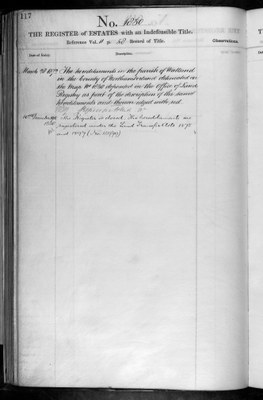 117
No. 1030
THE REGISTER of ESTATES with an Indefeasible Title.
Reference Vol. Record of Title.
Date of Entry.
Description.
Observations.
March 29 1870 The hereditaments in the parish of
in the County of Northumberland delineated on
the Map No 1030 deposited in the Office of Land
Registry as part of the description of the said
hereditaments and thereon edged with red
The Register is closed. The hereditaments are
registered under the Land Transfer Acts 1875
and 1897